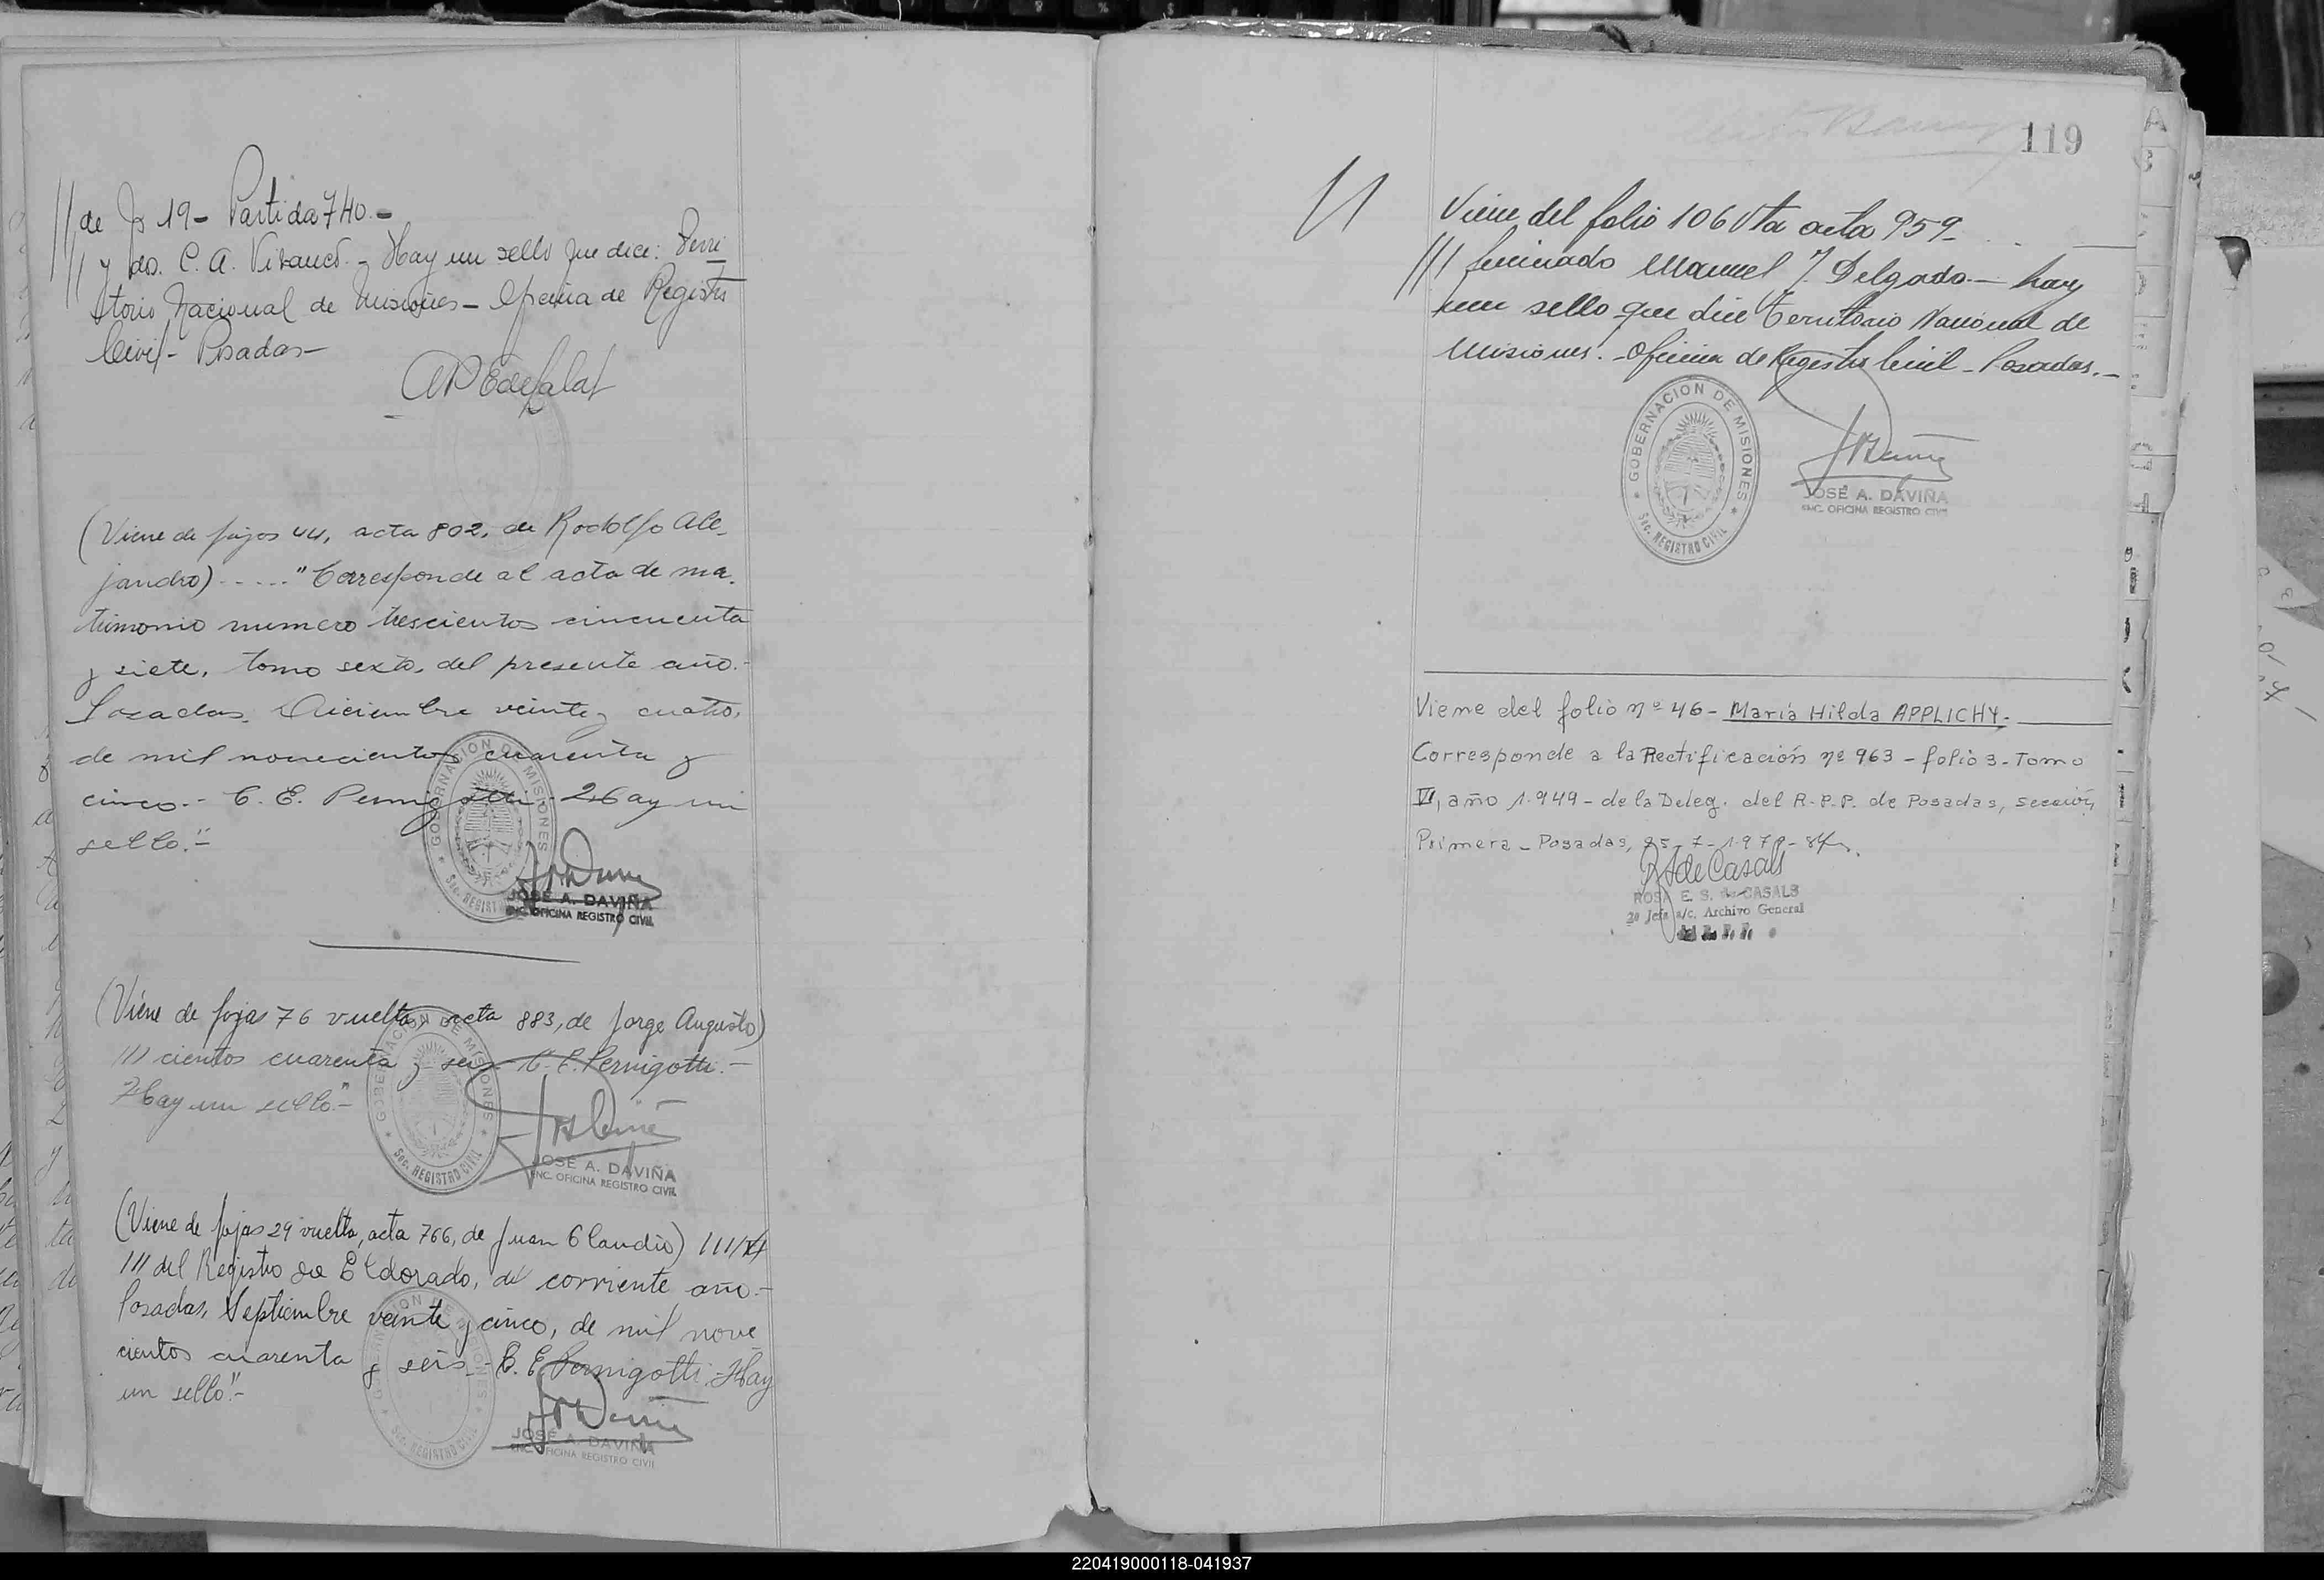 // de fs 19 - Partida 740.-
// y dos. C. A. Vivanco. - Hay un sello que dice: Terri
torio Nacional de Misiones - Oficina de Registro
Civil - Posadas -
(Viene de fojas 44, acta 802, de Rodolfo Ale-
jandro) ..... "Corresponde al acta de ma-
trimonio numero trescientos cincuenta
y siete, tomo sexto, del presente año.-
Posadas, Diciembre veinte y cuatro,
de mil novecientos cuarenta y
cinco.- C. E. Pernigotti - Hay un
sello."-
GOBERNACION DE MISIONES
Sec. REGISTRO CIVIL
JOSÉ A. DAVIÑA
ENC. OFICINA REGISTRO CIVIL
(Viene de fojas 76 vuelta, acta 883, de Jorge Augusto)
/// cientos cuarenta y seis - C. E. Pernigotti.-
Hay un sello"-
GOBERNACION DE MISIONES
Sec. REGISTRO CIVIL
JOSÉ A. DAVIÑA
ENC. OFICINA REGISTRO CIVIL
(Viene de fojas 29 vuelta, acta 766, de Juan Claudio) ///
/// del Registro de Eldorado, del corriente año.-
Posadas, Septiembre veinte y cinco, de mil nove
cientos cuarenta y seis - C. E. Pernigotti - Hay
un sello"-
GOBERNACION DE MISIONES
Sec. REGISTRO CIVIL
JOSÉ A. DAVIÑA
ENC. OFICINA REGISTRO CIVIL
119
Viene del folio 106 Vta acta 959-
/// Manuel J. Delgado.- hay
un sello que dice Territorio Nacional de
Misiones. - Oficina de Registro Civil - Posadas.-
GOBERNACION DE MISIONES
Sec. REGISTRO CIVIL
JOSÉ A. DAVIÑA
ENC. OFICINA REGISTRO CIVIL
Viene del folio nº 46 - María Hilda APPLICHY.-
Corresponde a la Rectificación nº 963 - folio 3 - Tomo
VI, año 1.949 - de la Deleg. del R.P.P. de Posadas, sección
Primera - Posadas, 25-7-1979-
RSdeCasals
ROSA E. S. de CASALS
2ª Jefa a/c. Archivo General
220419000118-041937